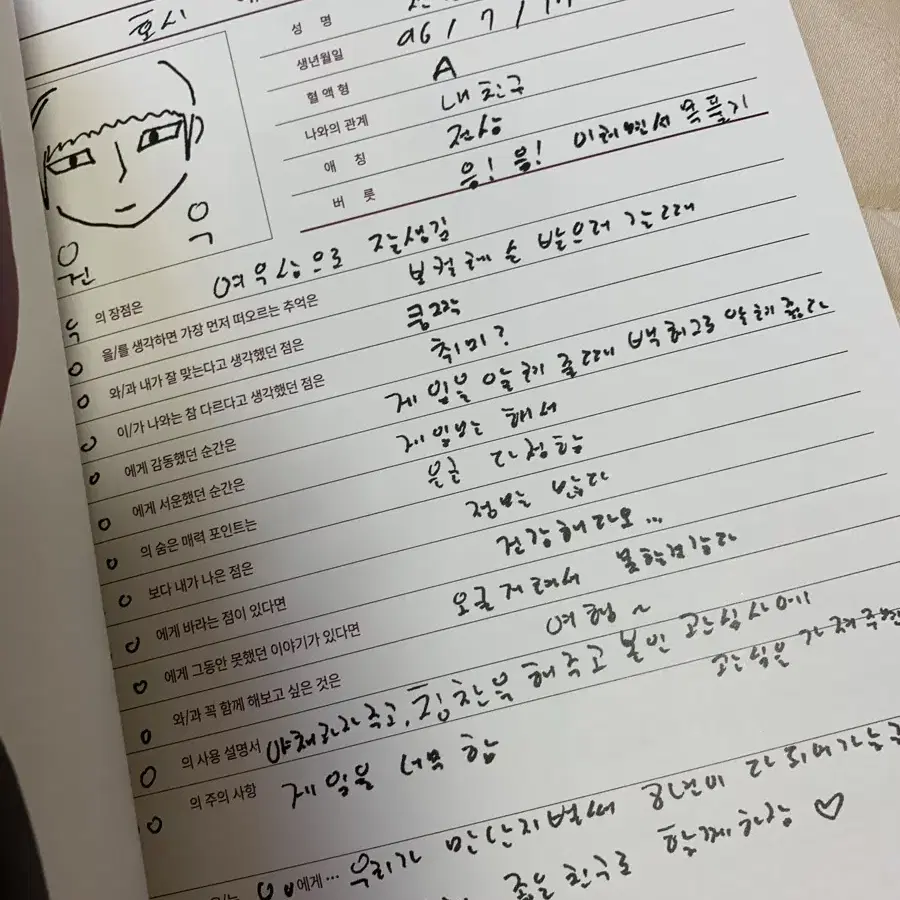 호시
성 명
생년월일 96 / 7 /
혈액형 A
나와의 관계 내 친구
애 칭
버 릇 음! 음! 이러면서 목풀기
원
우
의 장점은 여우상으로 잘생김
을/를 생각하면 가장 먼저 떠오르는 추억은 보컬레슨 받으러 갈 때
와/과 내가 잘 맞는다고 생각했던 점은 쿵짝
이/가 나와는 참 다르다고 생각했던 점은 취미?
에게 감동했던 순간은 제 일을 알려 줄 때
에게 서운했던 순간은 제 일만 해서
의 숨은 매력 포인트는 은근 다정함
보다 내가 나은 점은 정말 많다
에게 바라는 점이 있다면 건강해다오...
에게 그동안 못했던 이야기가 있다면 오글거려서 못할것같다
와/과 꼭 함께 해보고 싶은 것은 여행~
의 사용 설명서 해주고 본인 관심사에
관심을 가져주면
의 주의 사항 제 일을 너무 함
에게… 우리가 만난지 벌써 8년이 다 되어가는
좋은 친구로 함께하장 ♡